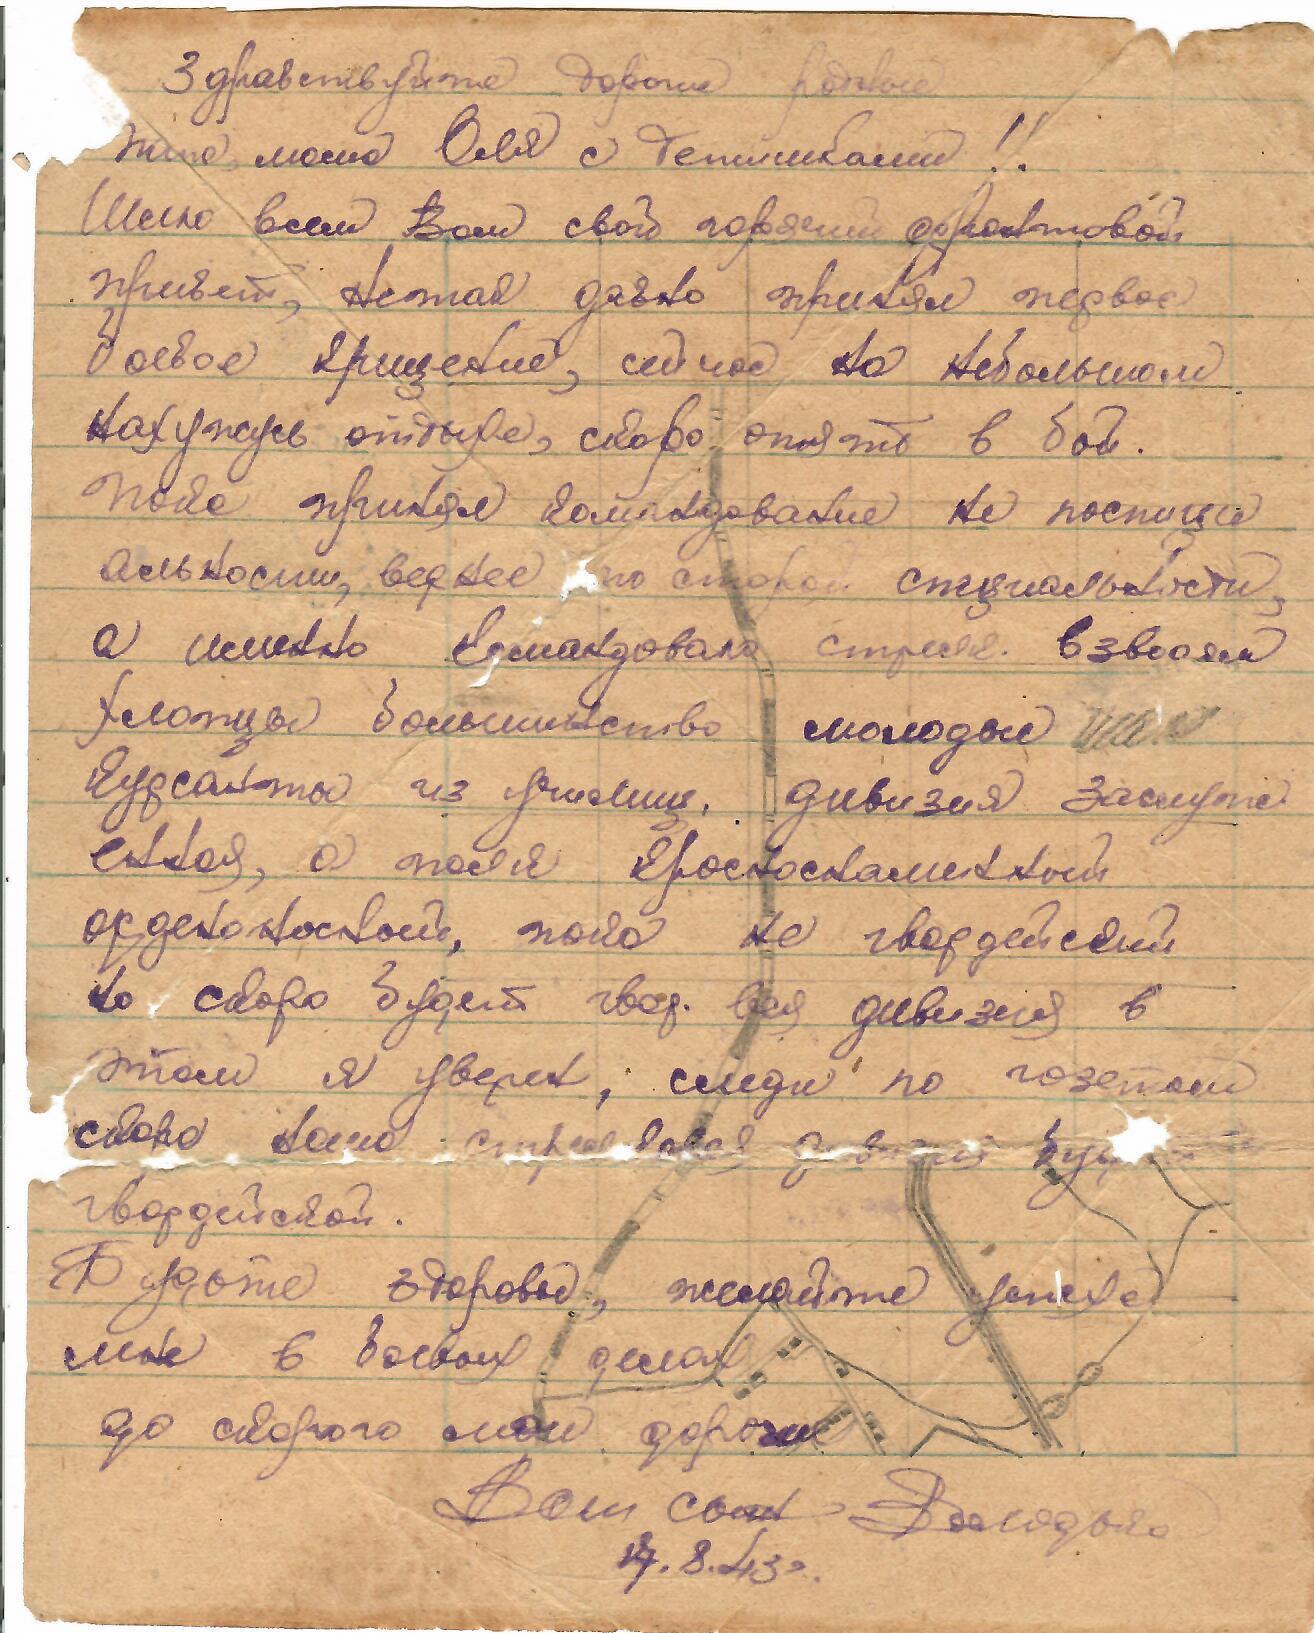 Здравствуйте дорогие родные
мама, Оля с детишками!!
Шлю всем Вам свой горячий фронтовой
привет, не так давно принял первое
боевое крищение, сейчас на небольшом
нахужусь отдыхе, скоро опять в бой.
пока принял командование не поспици
альности, вернее по старой специальности,
а именно командовать стрелк. взводом
Хлопцы большинство молодые
курсанты из училищ. дивизия заслуже
енная, а полк Краснознаменный
орденоносный, пока не гвардейский
но скоро будет гвар. вся дивизия в
этом я уверен, следи по газетам
скоро наша стрелковая дивизия будет
гвардейской.
Будьте здоровы, желайте успеха
мне в боевых делах
до скорого мои дорогие
Ваш сын Володька
8.43г.